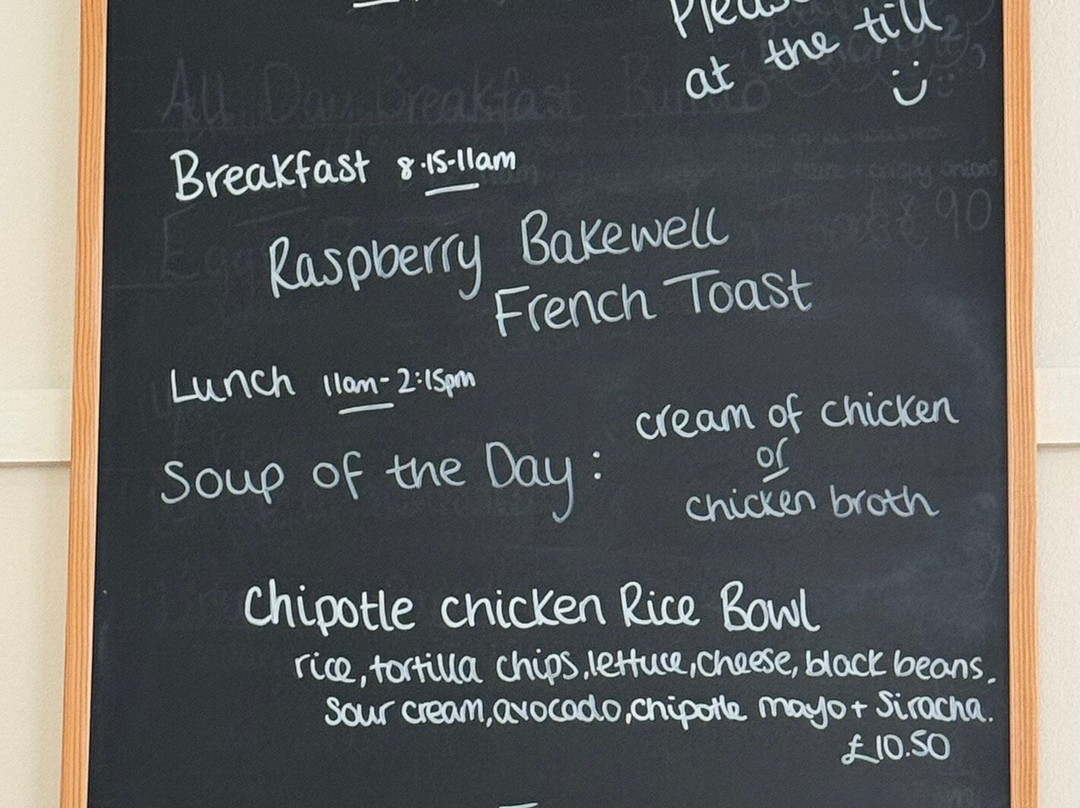 Please
at the till
Breakfast 8·15-11am
Raspberry Bakewell
French Toast
Lunch 11am-2:15pm
Soup of the Day: cream of chicken
or
chicken broth
Chipotle chicken Rice Bowl
rice, tortilla chips, lettuce, cheese, black beans,
sour cream, avocado, chipotle mayo + Siracha.
£10.50